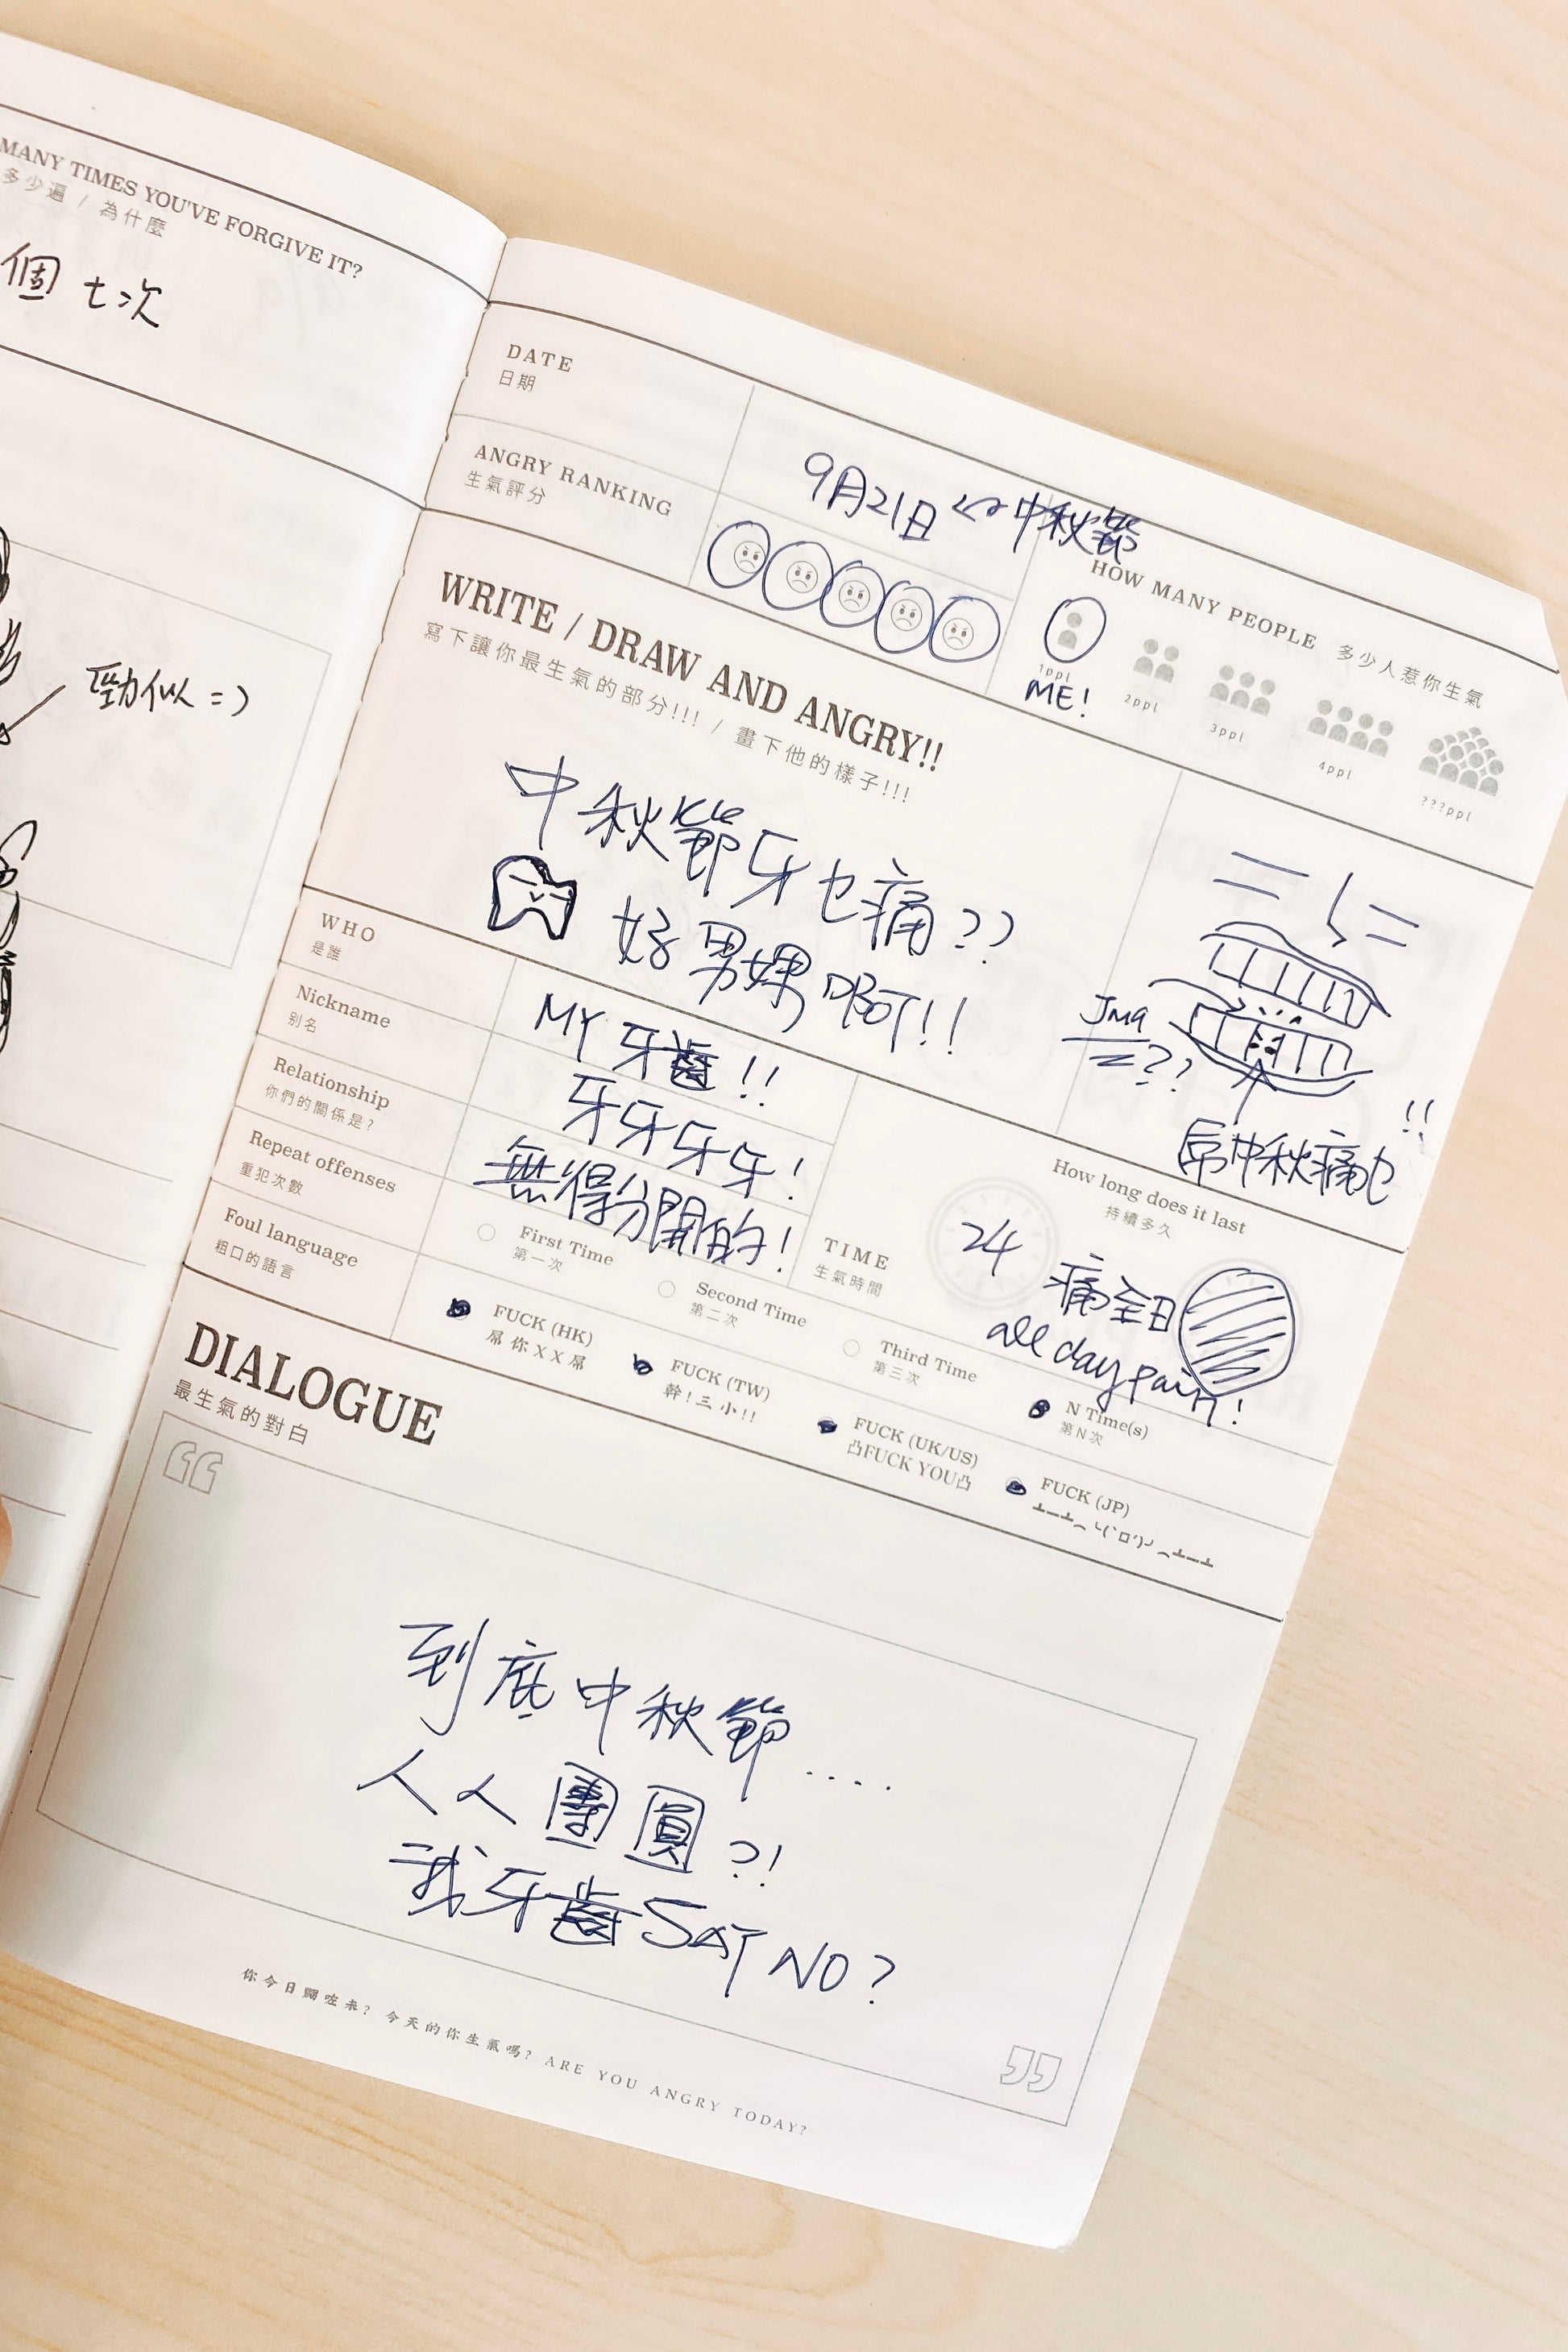 MANY TIMES YOU'VE FORGIVE IT?
多少遍 / 為什麼
個 七次
勁似 =)
DATE
日期
9月21日 <-> 中秋節
ANGRY RANKING
生氣評分
HOW MANY PEOPLE 多少人惹你生氣
1ppl
ME!
2ppl
3ppl
4ppl
???ppl
WRITE / DRAW AND ANGRY!!
寫下讓你最生氣的部分!!! / 畫下他的樣子!!!
中秋節牙也痛??
好男 啊!!
中秋痛也!!
WHO
是誰
MY 牙齒!!
Nickname
别名
牙牙牙牙!
Relationship
你們的關係是?
無得分開的!
TIME
生氣時間
How long does it last
持續多久
24 痛全日
all day pain!
Repeat offenses
重犯次數
First Time
第一次
Second Time
第二次
Third Time
第三次
N Time(s)
第N次
Foul language
粗口的語言
FUCK (HK)
屌你XX屌
FUCK (TW)
幹!三小!!
FUCK (UK/US)
凸FUCK YOU凸
FUCK (JP)
DIALOGUE
最生氣的對白
到底中秋節....
人人團圓?!
我牙齒SAY NO?
你今日𨶙咗未? 今天的你生氣嗎? ARE YOU ANGRY TODAY?